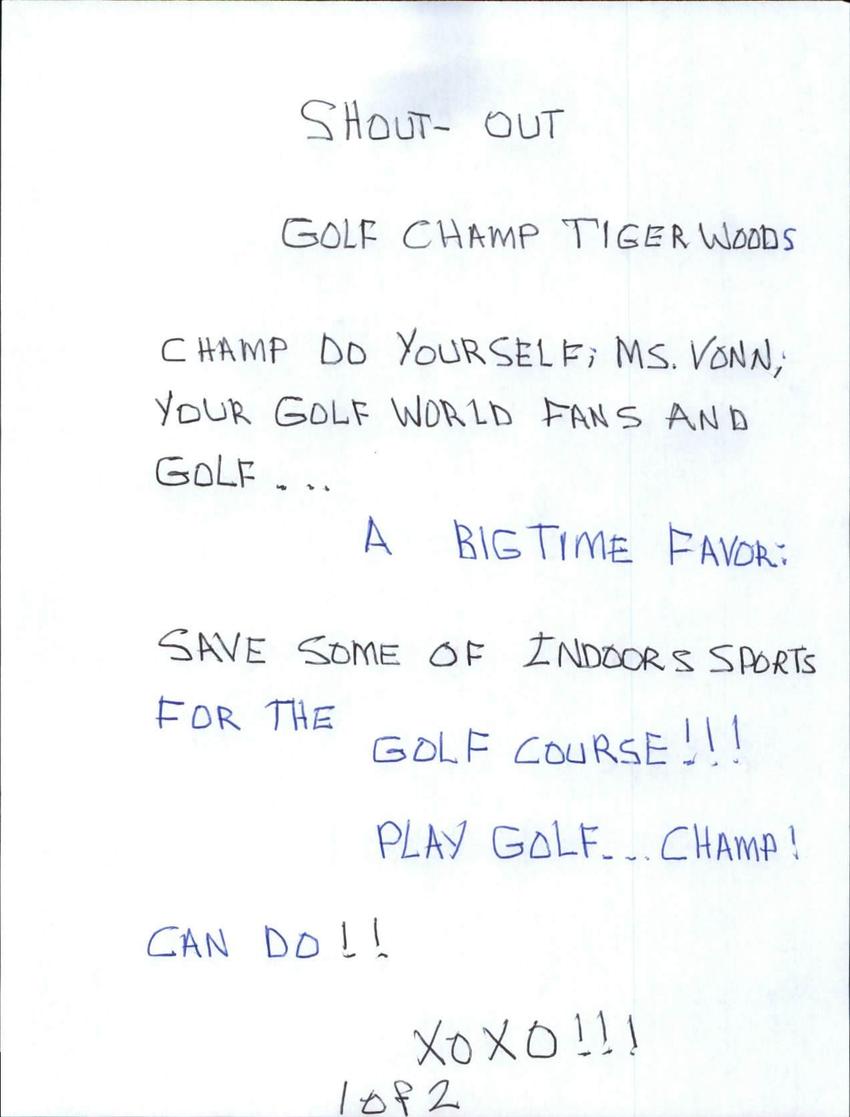 SHOUT- OUT
GOLF CHAMP TIGER WOODS
CHAMP DO YOURSELF; MS. VONN;
YOUR GOLF WORLD FANS AND
GOLF...
A BIG TIME FAVOR:
SAVE SOME OF INDOORS SPORTS
FOR THE
GOLF COURSE!!!
PLAY GOLF... CHAMP!
CAN DO!!
XOXO!!!
1 of 2